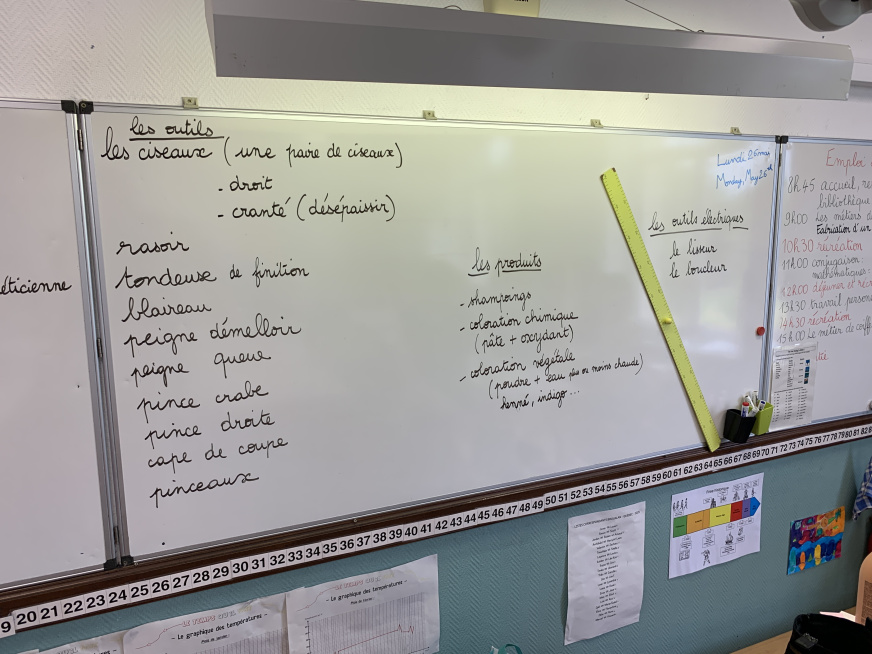 les outils
les ciseaux (une paire de ciseaux)
- droit
- cranté (désépaissir)
rasoir
tondeuse de finition
blaireau
peigne démelloir
peigne queue
pince crabe
pince droite
cape de coupe
pinceaux
les produits
- shampoings
- coloration chimique
(pâte + oxydant)
- coloration végétale
(poudre + eau plus ou moins chaude)
henné, indigo...
Lundi 26 mai
Monday, May 26th
les outils électriques
le lisseur
le boucleur
éticienne
Emploi
8h45 accueil,
bibliothèque
9h00 Les métiers
Fabrication d'un
10h30 récréation
11h00 conjugaison:
mathématiques:
12h00 déjeuner et
13h30 travail
14h30 récréation
15h00 Le métier de
9 20 21 22 23 24 25 26 27 28 29 30 31 32 33 34 35 36 37 38 39 40 41 42 43 44 45 46 47 48 49 50 51 52 53 54 55 56 57 58 59 60 61 62 63 64 65 66 67 68 69 70 71 72 73 74 75 76 77 78 79 80 81 82
- Le graphique des températures -
- Le graphique des températures -